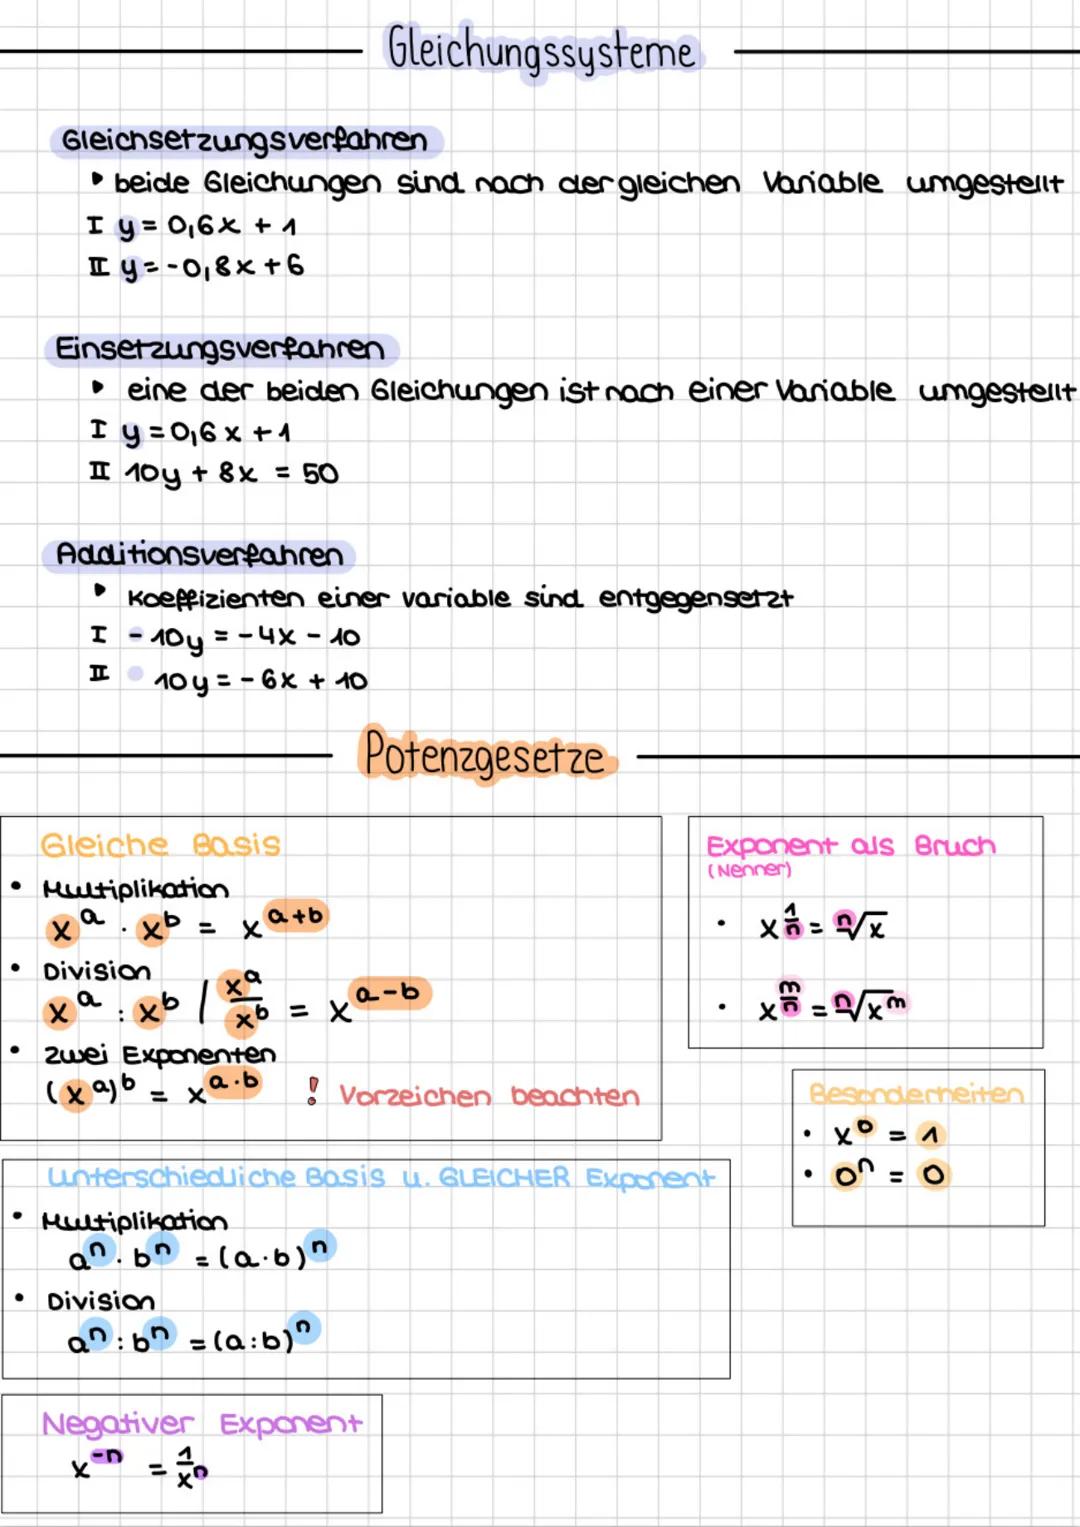 Gleichungssysteme
Gleichsetzungsverfahren
‣ beide Gleichungen sind nach der gleichen Variable umgestellt
I y = 0,6x + 1
II y = -0,8x + 6
Einsetzungsverfahren
‣ eine der beiden Gleichungen ist nach einer Variable umgestellt
I y = 0,6x + 1
II 10y + 8x = 50
Additionsverfahren
‣ Koeffizienten einer variable sind entgegensetzt
I - 10y = - 4x - 10
II 10y = - 6x + 10
Potenzgesetze
Gleiche Basis
• Multiplikation
xᵃ · xᵇ = xᵃ⁺ᵇ
• Division
xᵃ : xᵇ / xᵃ/xᵇ = xᵃ⁻ᵇ
• zwei Exponenten
(xᵃ)ᵇ = x^(a·b) ! Vorzeichen beachten
Exponent als Bruch
(Nenner)
• x^(1/n) = ⁿ√x
• x^(m/n) = ⁿ√xᵐ
Besonderheiten
• x⁰ = 1
• 0ⁿ = 0
Unterschiedliche Basis u. GLEICHER Exponent
• Multiplikation
aⁿ · bⁿ = (a·b)ⁿ
• Division
aⁿ : bⁿ = (a:b)ⁿ
Negativer Exponent
x⁻ⁿ = 1/xⁿ